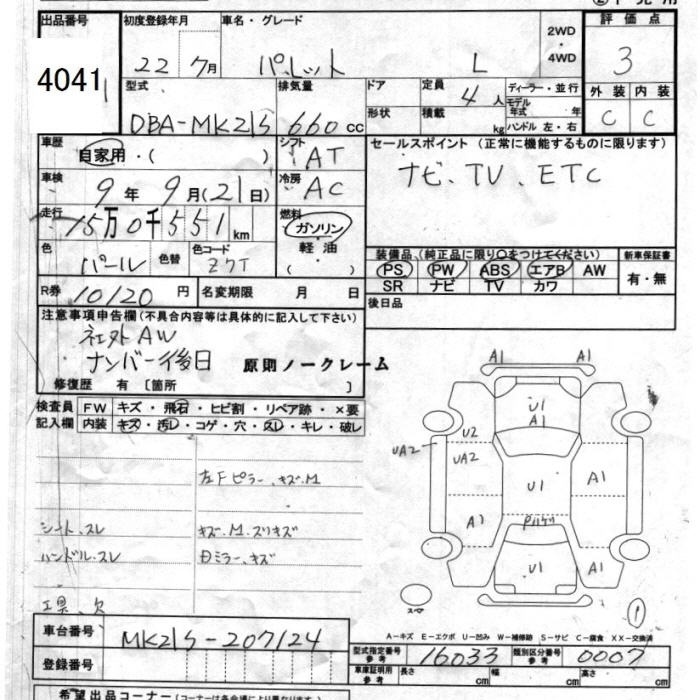 出品番号 初度登録年月 車名・グレード 2WD・4WD 評価点
4041 22 7月 パレット L 3
型式 排気量 ドア 定員 ディーラー・並行 外装 内装
DBA-MK21S 660 CC 形状 積載 4人 kg モデル年式 年 ハンドル 左・右 C C
車歴 自家用・( ) シフト AT セールスポイント (正常に機能するものに限ります)
車検 9年 9月(21日) 冷房 AC ナビ、TV、ETC
走行 15万0千551km 燃料 ガソリン 軽・油 ( )
色 パール 色替 色コード Z7T 装備品 (純正品に限り○をつけてください) 新車保証書
PS PW ABS エアB AW 有・無
SR ナビ TV カワ
R券 10120 円 名変期限 月 日 後日品
注意事項申告欄 (不具合内容等は具体的に記入して下さい)
社外AW
ナンバー後日 原則ノークレーム
修復歴 有 〔箇所 〕
検査員 FW キズ・飛石・ヒビ割・リペア跡・×要
記入欄 内装 キズ・汚レ・コゲ・穴・スレ・キレ・破レ
左Fピラー、キズ、M
シート、スレ キズ、M、スリキズ
ハンドル、スレ Dミラー、キズ
工具、欠
A1 A1
U1
A1
U2
UA2 UA2
U1 A1
A1
U1 A1
スマ 1
A-キズ E-エクボ U-凹み W-補修跡 S-サビ C-腐食 XX-交換済
車台番号 MK21S-207124
型式指定番号 参考 16033 類別区分番号 参考 0007
登録番号 車庫証明用 参考 長さ cm 幅 cm 高さ cm
希望出品コーナー